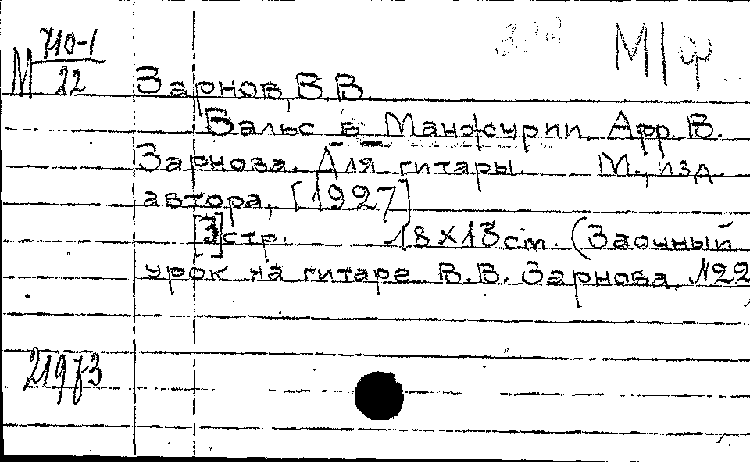 М 710-1/22
М/ф
Зарнов, В.В.
Вальс в Манджурии. Арр. В.
Зарнова. Для гитары. М., изд.
автора, [1927]
[3]стр. 18×13cm. (Заочный
урок на гитаре В.В. Зарнова. №22
21973